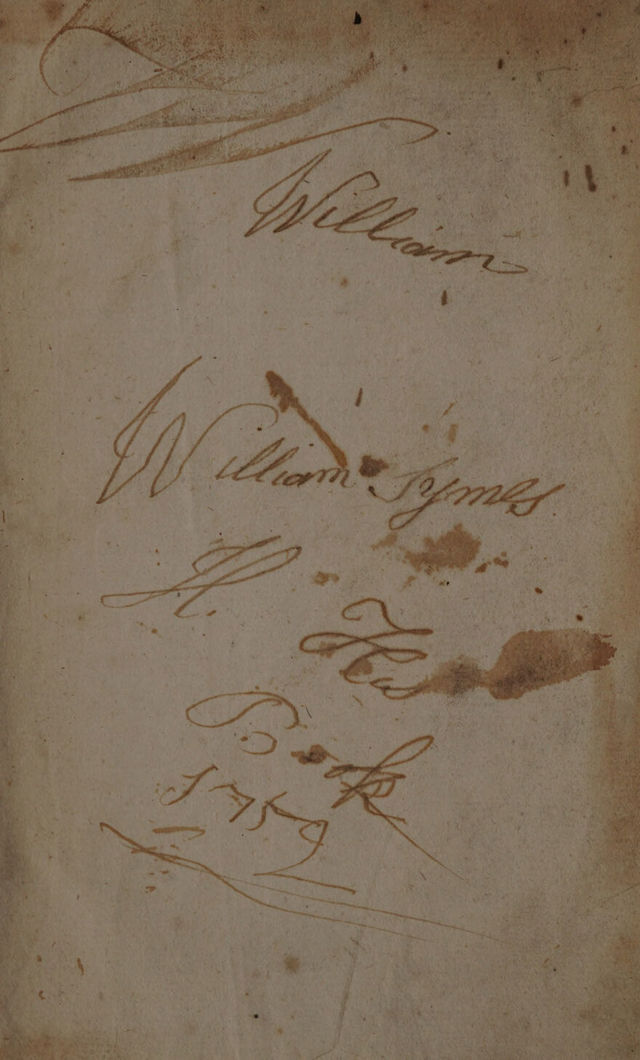 William
William Symes
H
His
Book
1759